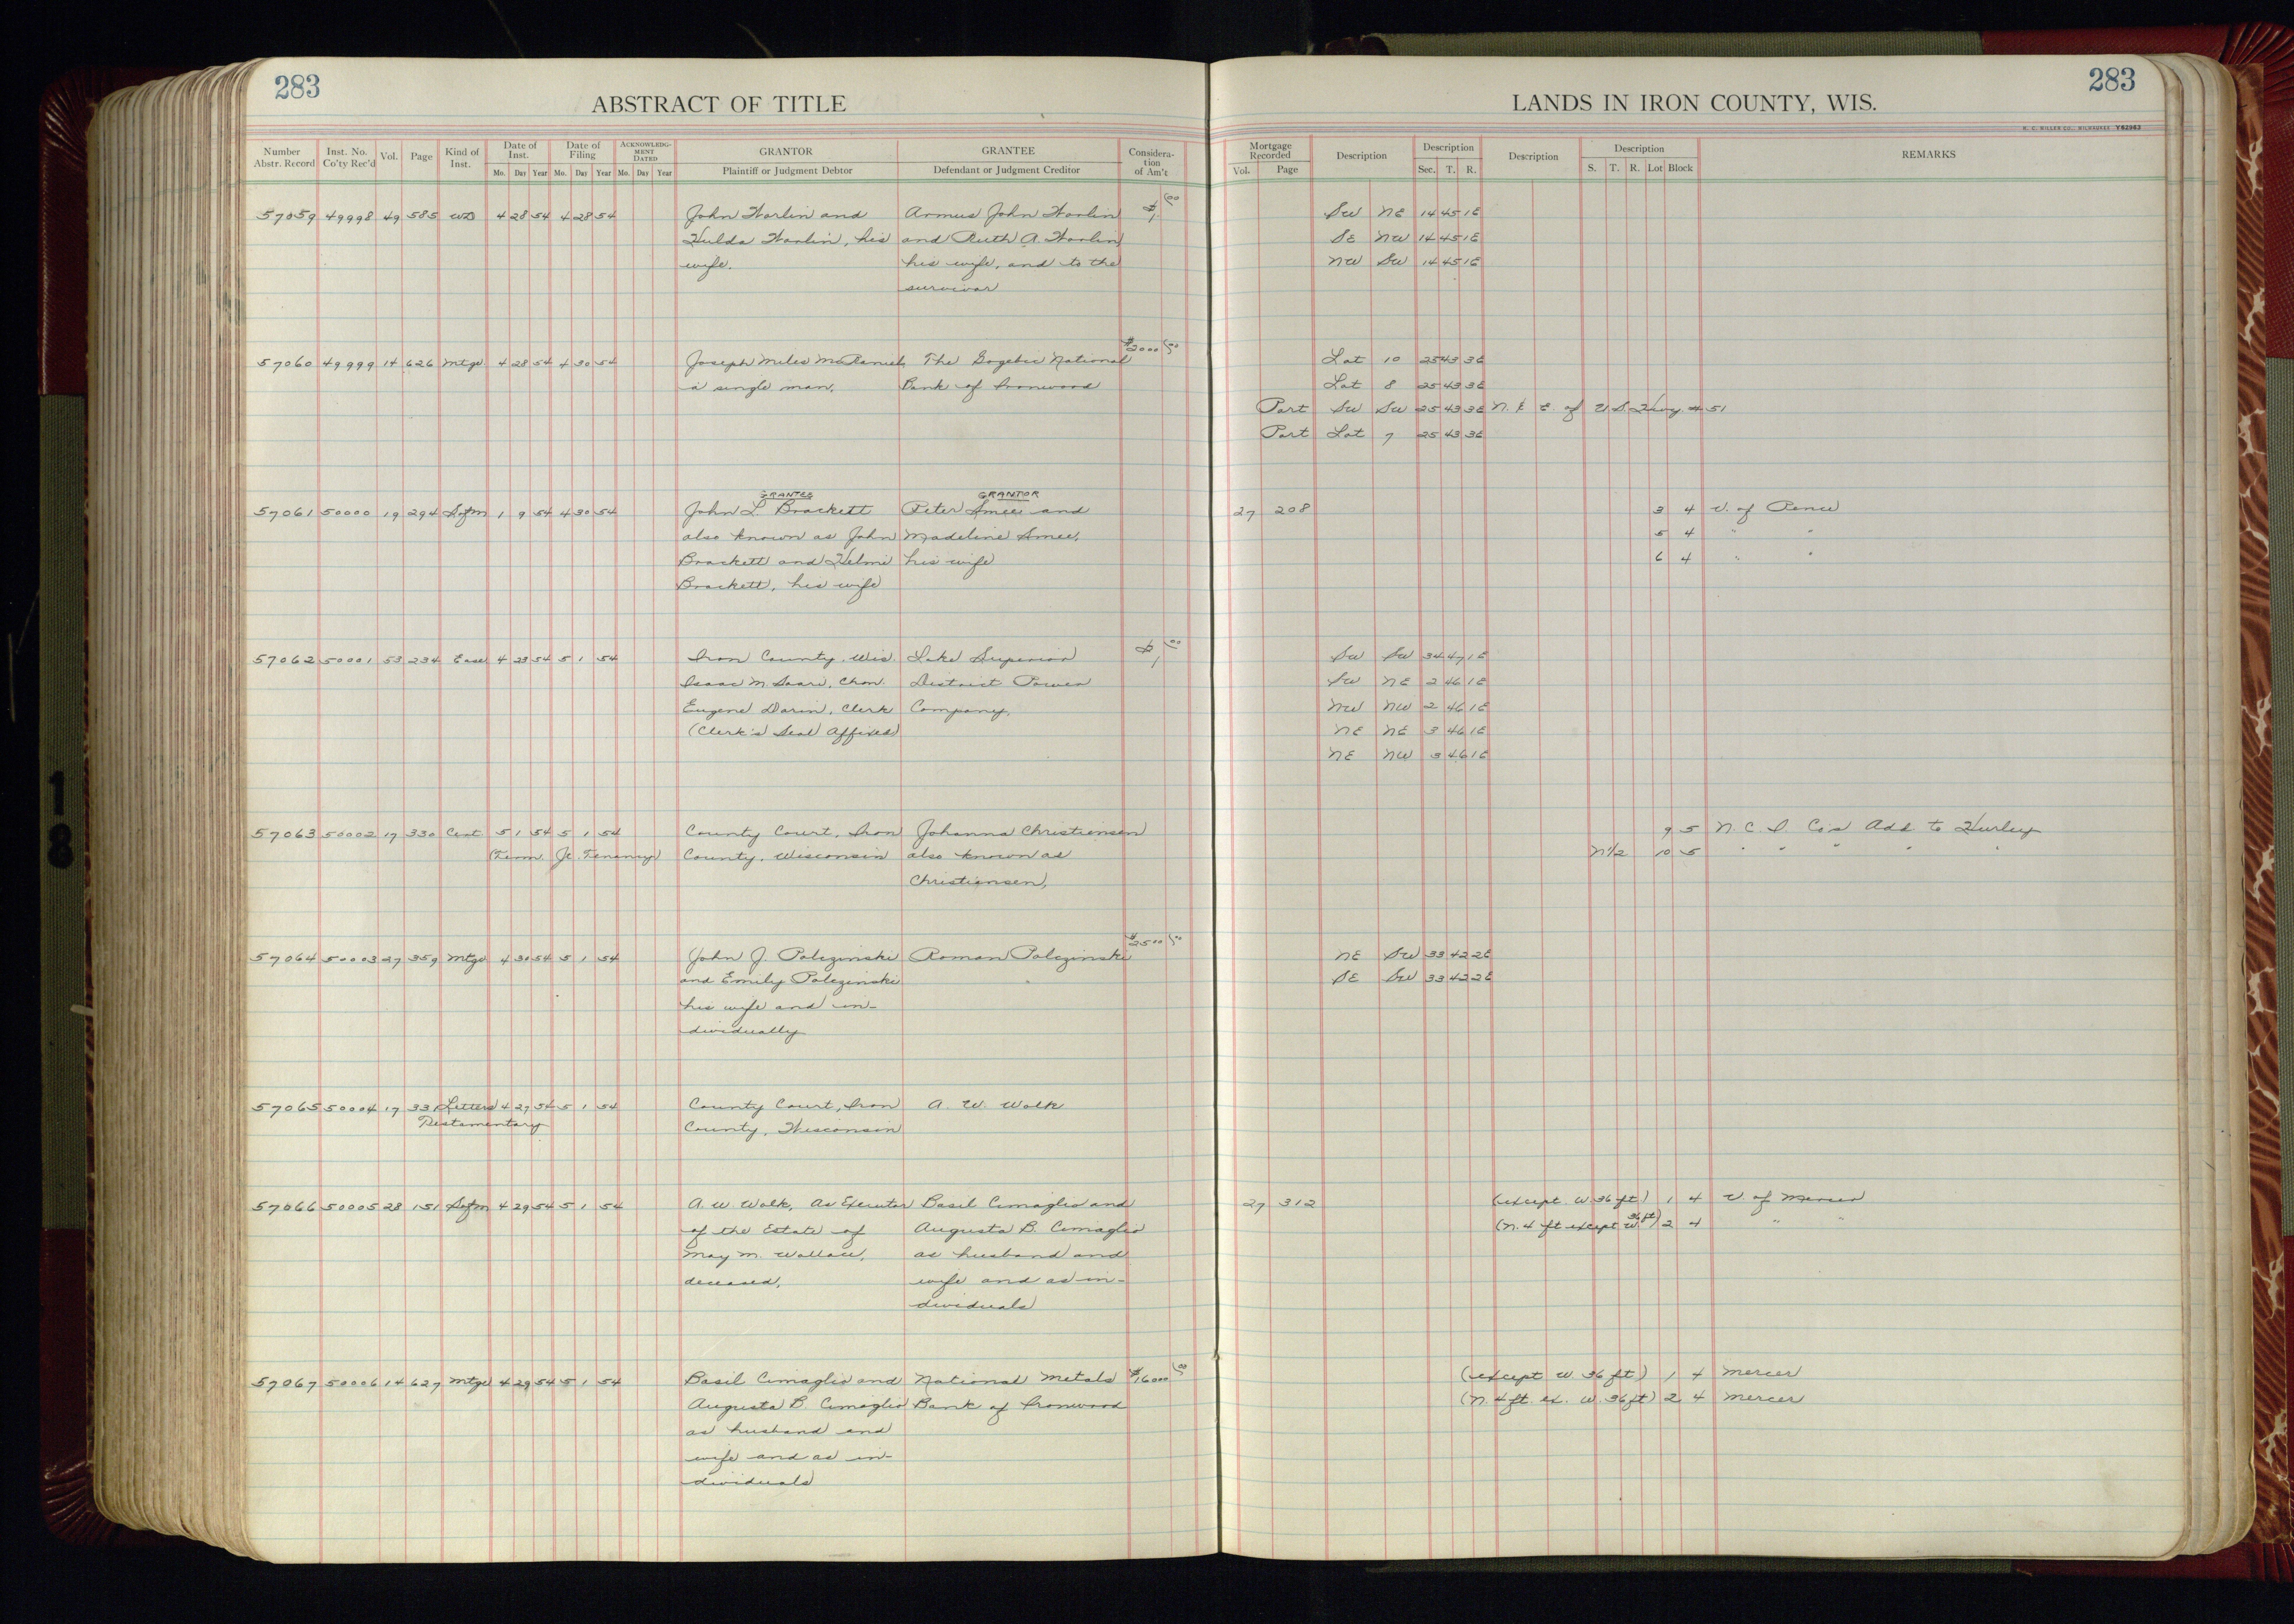 283
ABSTRACT OF TITLE
LANDS IN IRON COUNTY, WIS.
283
H. C. MILLER CO. MILWAUKEE Y82963
Number Abstr. Record Inst. No. Co'ty Rec'd Vol. Page Kind of Inst. Date of Inst. Mo. Day Year Date of Filing Mo. Day Year ACKNOWLEDGMENT DATED Mo. Day Year GRANTOR Plaintiff or Judgment Debtor GRANTEE Defendant or Judgment Creditor Consideration of Am't Mortgage Recorded Vol. Page Description Description Sec. T. R. Description Description S. T. R. Lot Block REMARKS
57059 49998 49 585 WD 4 28 54 4 28 54 John Harlin and Armus John Harlin $1 00 SW NE 14 45 1E
Hulda Harlin, his and Ruth A. Harlin SE NW 14 45 1E
wife. his wife, and to the NW SW 14 45 1E
survivor
57060 49999 14 626 Mtge. 4 28 54 4 30 54 Joseph Miles McDaniel, The Gogebic National $2000 00 Lot 10 25 43 3E
a single man. Bank of Ironwood Lot 8 25 43 3E
Part SW SW 25 43 3E N. & E. of U.S. Hwy # 51
Part Lot 7 25 43 3E
GRANTEE GRANTOR
57061 50000 19 294 Sofm 1 9 54 4 30 54 John L. Brackett Peter Smee and 27 208 3 4 V. of Pence
also known as John Madeline Smee, 5 4 " "
Brackett and Helmi his wife 6 4 " "
Brackett, his wife
57062 50001 53 234 Ease 4 23 54 5 1 54 Iron County, Wis. Lake Superior $1 00 SW SW 34 47 1E
Isaac M. Saari, Chm. District Power SW NE 2 46 1E
Eugene Darin, Clerk Company, NW NW 2 46 1E
(Clerk's Seal Affixed) NE NE 3 46 1E
NE NW 3 46 1E
57063 50002 17 330 Cert. 5 1 54 5 1 54 County Court, Iron Johanna Christiensen 9 5 N. C. I. Co's Add. to Hurley
(Term. Jt. Tenancy) County, Wisconsin also known as N1/2 10 5 " " " " "
Christiansen,
57064 50003 27 359 Mtge 4 30 54 5 1 54 John J. Palczinski Roman Palczinski $2500 00 NE SW 33 42 2E
and Emily Palczinski SE SW 33 42 2E
his wife and in-
dividually
57065 50004 17 331 Letters 4 27 54 5 1 54 County Court, Iron A. W. Walk
Testamentary County, Wisconsin
57066 50005 28 151 Sofm 4 29 54 5 1 54 A. W. Walk, As Executor Basil Cimaglio and 27 312 (except. W 36 ft.) 1 4 V. of Mercer
of the Estate of Augusta B. Cimaglio (N. 4 ft except W. 36 ft) 2 4 " "
May M. Wallace, as husband and
deceased, wife and as in-
dividuals
57067 50006 14 627 Mtge 4 29 54 5 1 54 Basil Cimaglio and National Metals $16000 00 (except W 36 ft) 1 4 Mercer
Augusta B. Cimaglio Bank of Ironwood (N. 4 ft. ex. W. 36 ft) 2 4 Mercer
as husband and
wife and as in-
dividuals
18